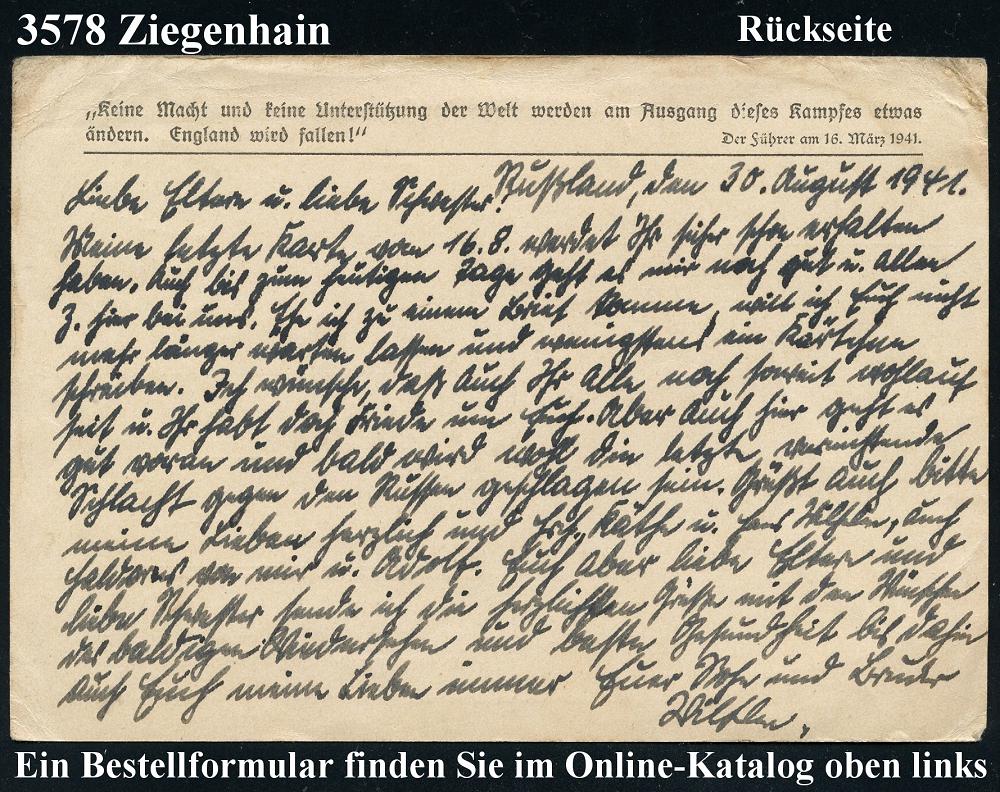 3578 Ziegenhain
Rückseite
„Keine Macht und keine Unterstützung der Welt werden am Ausgang dieses Kampfes etwas
ändern. England wird fallen!“
Der Führer am 16. März 1941.
Rußland, den 30. August 1941.
Liebe Eltern u. liebe Schwester!
Meine letzte Karte vom 16.8. werdet Ihr sicher schon erhalten
haben. Auch bis zum heutigen Tage geht es mir noch gut u. Allen
z. hier bei uns. Ehe ich zu einem Brief komme, will ich Euch nicht
mehr länger warten lassen und wenigstens ein Kärtchen
schreiben. Ich wünsche, daß Auch Ihr Alle noch soweit wohlauf
seit u. Ihr habt doch Friede um Euch. Aber Auch hier geht es
gut voran und bald wird wohl die letzte vernichtende
Schlacht gegen den Russen geschlagen sein. Grüßt Auch bitte
meine Lieben herzlich und Käthe u. auch
von mir u. Adolf. Euch Aber liebe Eltern und
liebe Schwester sende ich die herzlichsten Grüße mit den Wünschen
des baldigen Wiedersehen und besten Gesundheit bis dahin
Auch Euch meine Lieben immer Euer Sohn und Bruder
Ein Bestellformular finden Sie im Online-Katalog oben links